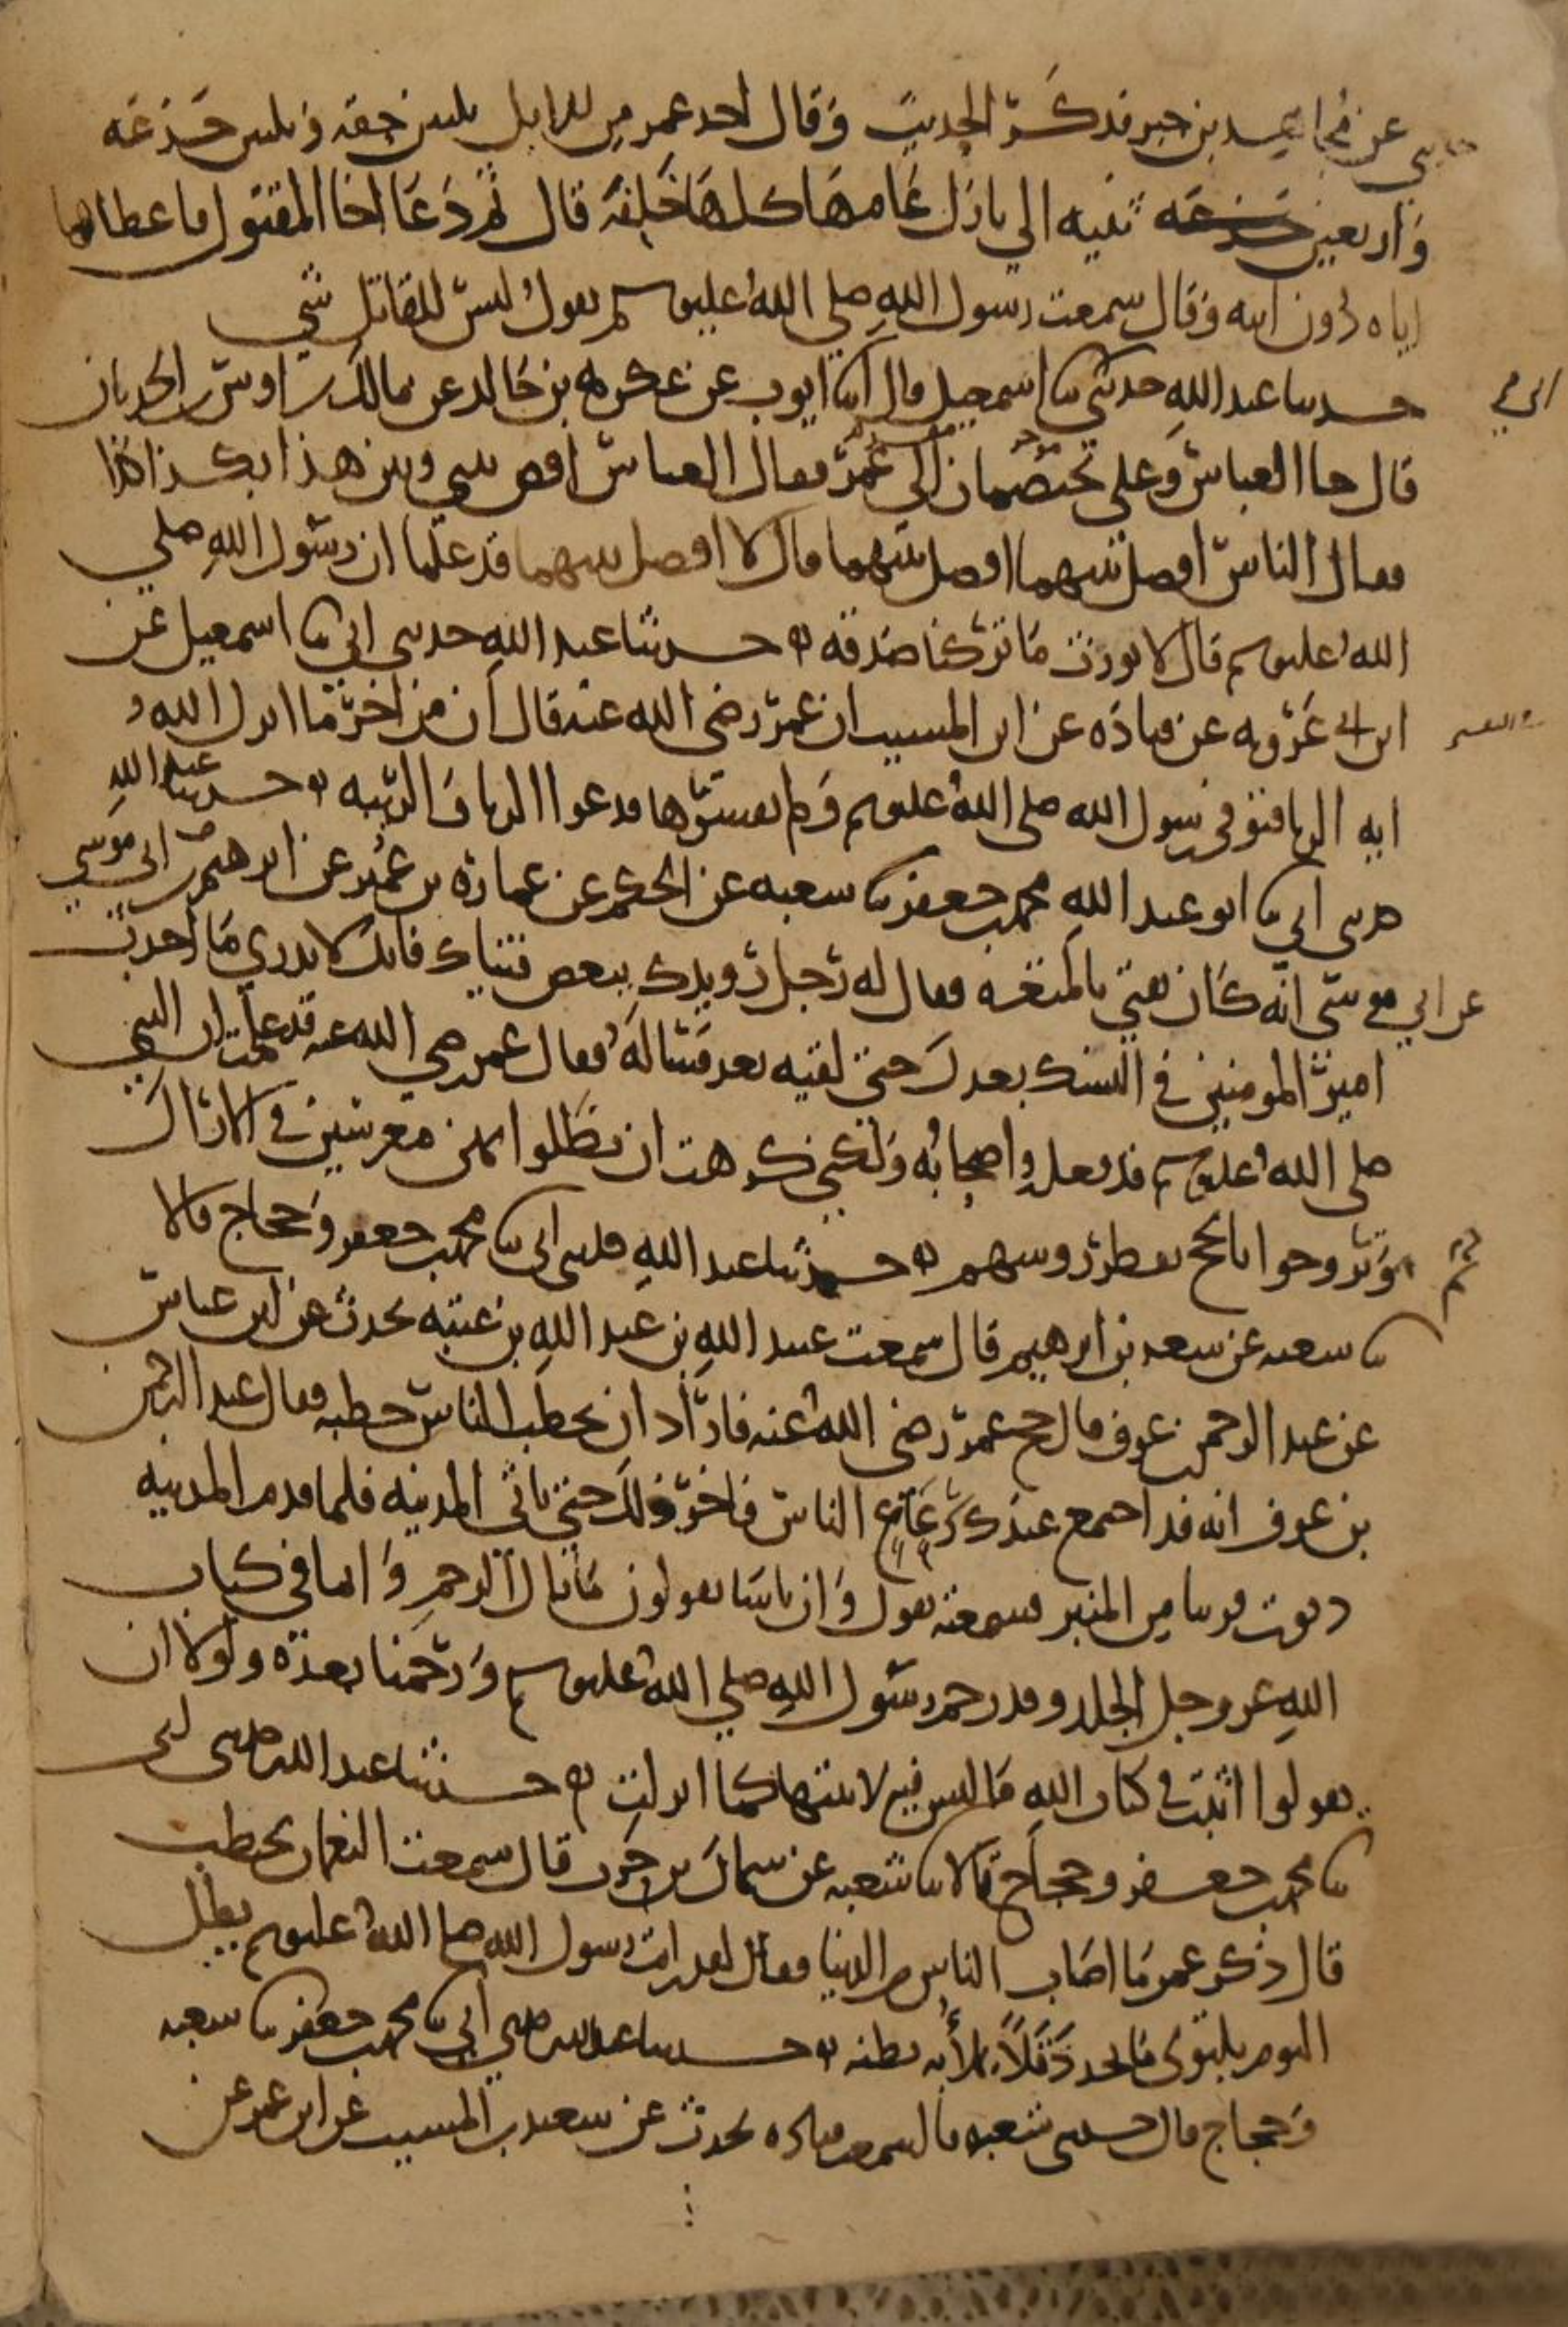 عن مجاهد بن جبر فذكر الحديث وقال اخذ عمر من الابل ثلثين حقه وثلثين جذعه
واربعين جذعه ثنيه الي بازل عامها كلها خلفه قال ثم دعا اخا المقتول فاعطاها
اياه دون ابيه وقال سمعت رسول الله صلي الله عليه وسلم يقول ليس للقاتل شي
حدثنا عبد الله حدثني ثنا اسمعيل قال انا ايوب عن عكرمه بن خالد عن مالك بن اوس بن الحدثان
ابي
قال جا العباس وعلي يختصمان الي عمر فقال العباس اقض بيني وبين هذا الكذا كذا
فقال الناس افصل بينهما افصل بينهما قال لا افصل بينهما قد علما ان رسول الله صلي
الله عليه وسلم قال لا نورث ما تركنا صدقه حدثنا عبد الله حدثني ابي ثنا اسمعيل عن
ابن ابي عروبه عن قتاده عن ابن المسيب ان عمر رضي الله عنه قال ان من اخر ما انزل الله
ايه الربا فتوفي رسول الله صلي الله عليه وسلم ولم يفسرها فدعوا الربا والريبه حدثنا عبد الله
حدثني ابي ثنا ابو عبد الله محمد بن جعفر ثنا شعبه عن الحكم عن عماره بن عمير عن ابرهيم بن ابي موسي
عن ابي موسي انه كان يفتي بالمتعه فقال له رجل رويدك ببعض فتياك فانك لا تدري ما احدث
امير المومنين في النسك بعدك حتي لقيه بعد فساله فقال عمر رضي الله عنه قد علمت ان النبي
صلي الله عليه وسلم قد فعله واصحابه ولكني كرهت ان يظلوا بهن معرسين في الاراك
ثم
وتروحوا بالحج تقطر روسهم حدثنا عبد الله حدثني ابي ثنا محمد بن جعفر وحجاج قالا
ثنا شعبه عن سعد بن ابرهيم قال سمعت عبيد الله بن عبد الله بن عتبه يحدث عن ابن عباس
عن عبد الرحمن بن عوف قال حج عمر رضي الله عنه فاراد ان يخطب الناس خطبه فقال عبد الرحمن
بن عوف انه قد اجتمع عندك رعاع الناس فاخر ذلك حتي تاتي المدينه فلما قدم المدينه
دنوت قريبا من المنبر فسمعته يقول وان ناسا يقولون ما بال الرجم وانما في كتاب
الله عز وجل الجلد وقد رجم رسول الله صلي الله عليه وسلم ورجمنا بعده ولولا ان
يقولوا اثبت في كتاب الله ما ليس فيه لاثبتها كما انزلت حدثنا عبد الله حدثني ابي
ثنا محمد بن جعفر وحجاج قالا ثنا شعبه عن سماك بن حرب قال سمعت النعمان يخطب
قال ذكر عمر ما اصاب الناس من الدنيا فقال لقد رايت رسول الله صلي الله عليه وسلم يظل
اليوم يلتوي ما يجد دقلا يملا به بطنه حدثنا عبد الله حدثني ابي ثنا محمد بن جعفر ثنا شعبه
وحجاج قال حدثني شعبه قال سمعت قتاده يحدث عن سعيد بن المسيب عن ابن عمر عن